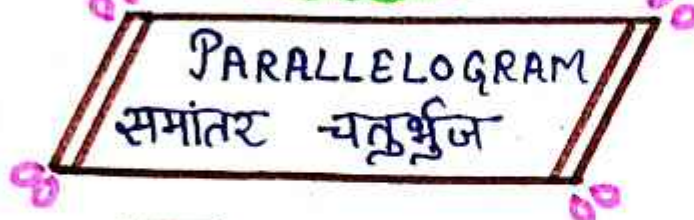 PARALLELOGRAM
समांतर चतुर्भुज